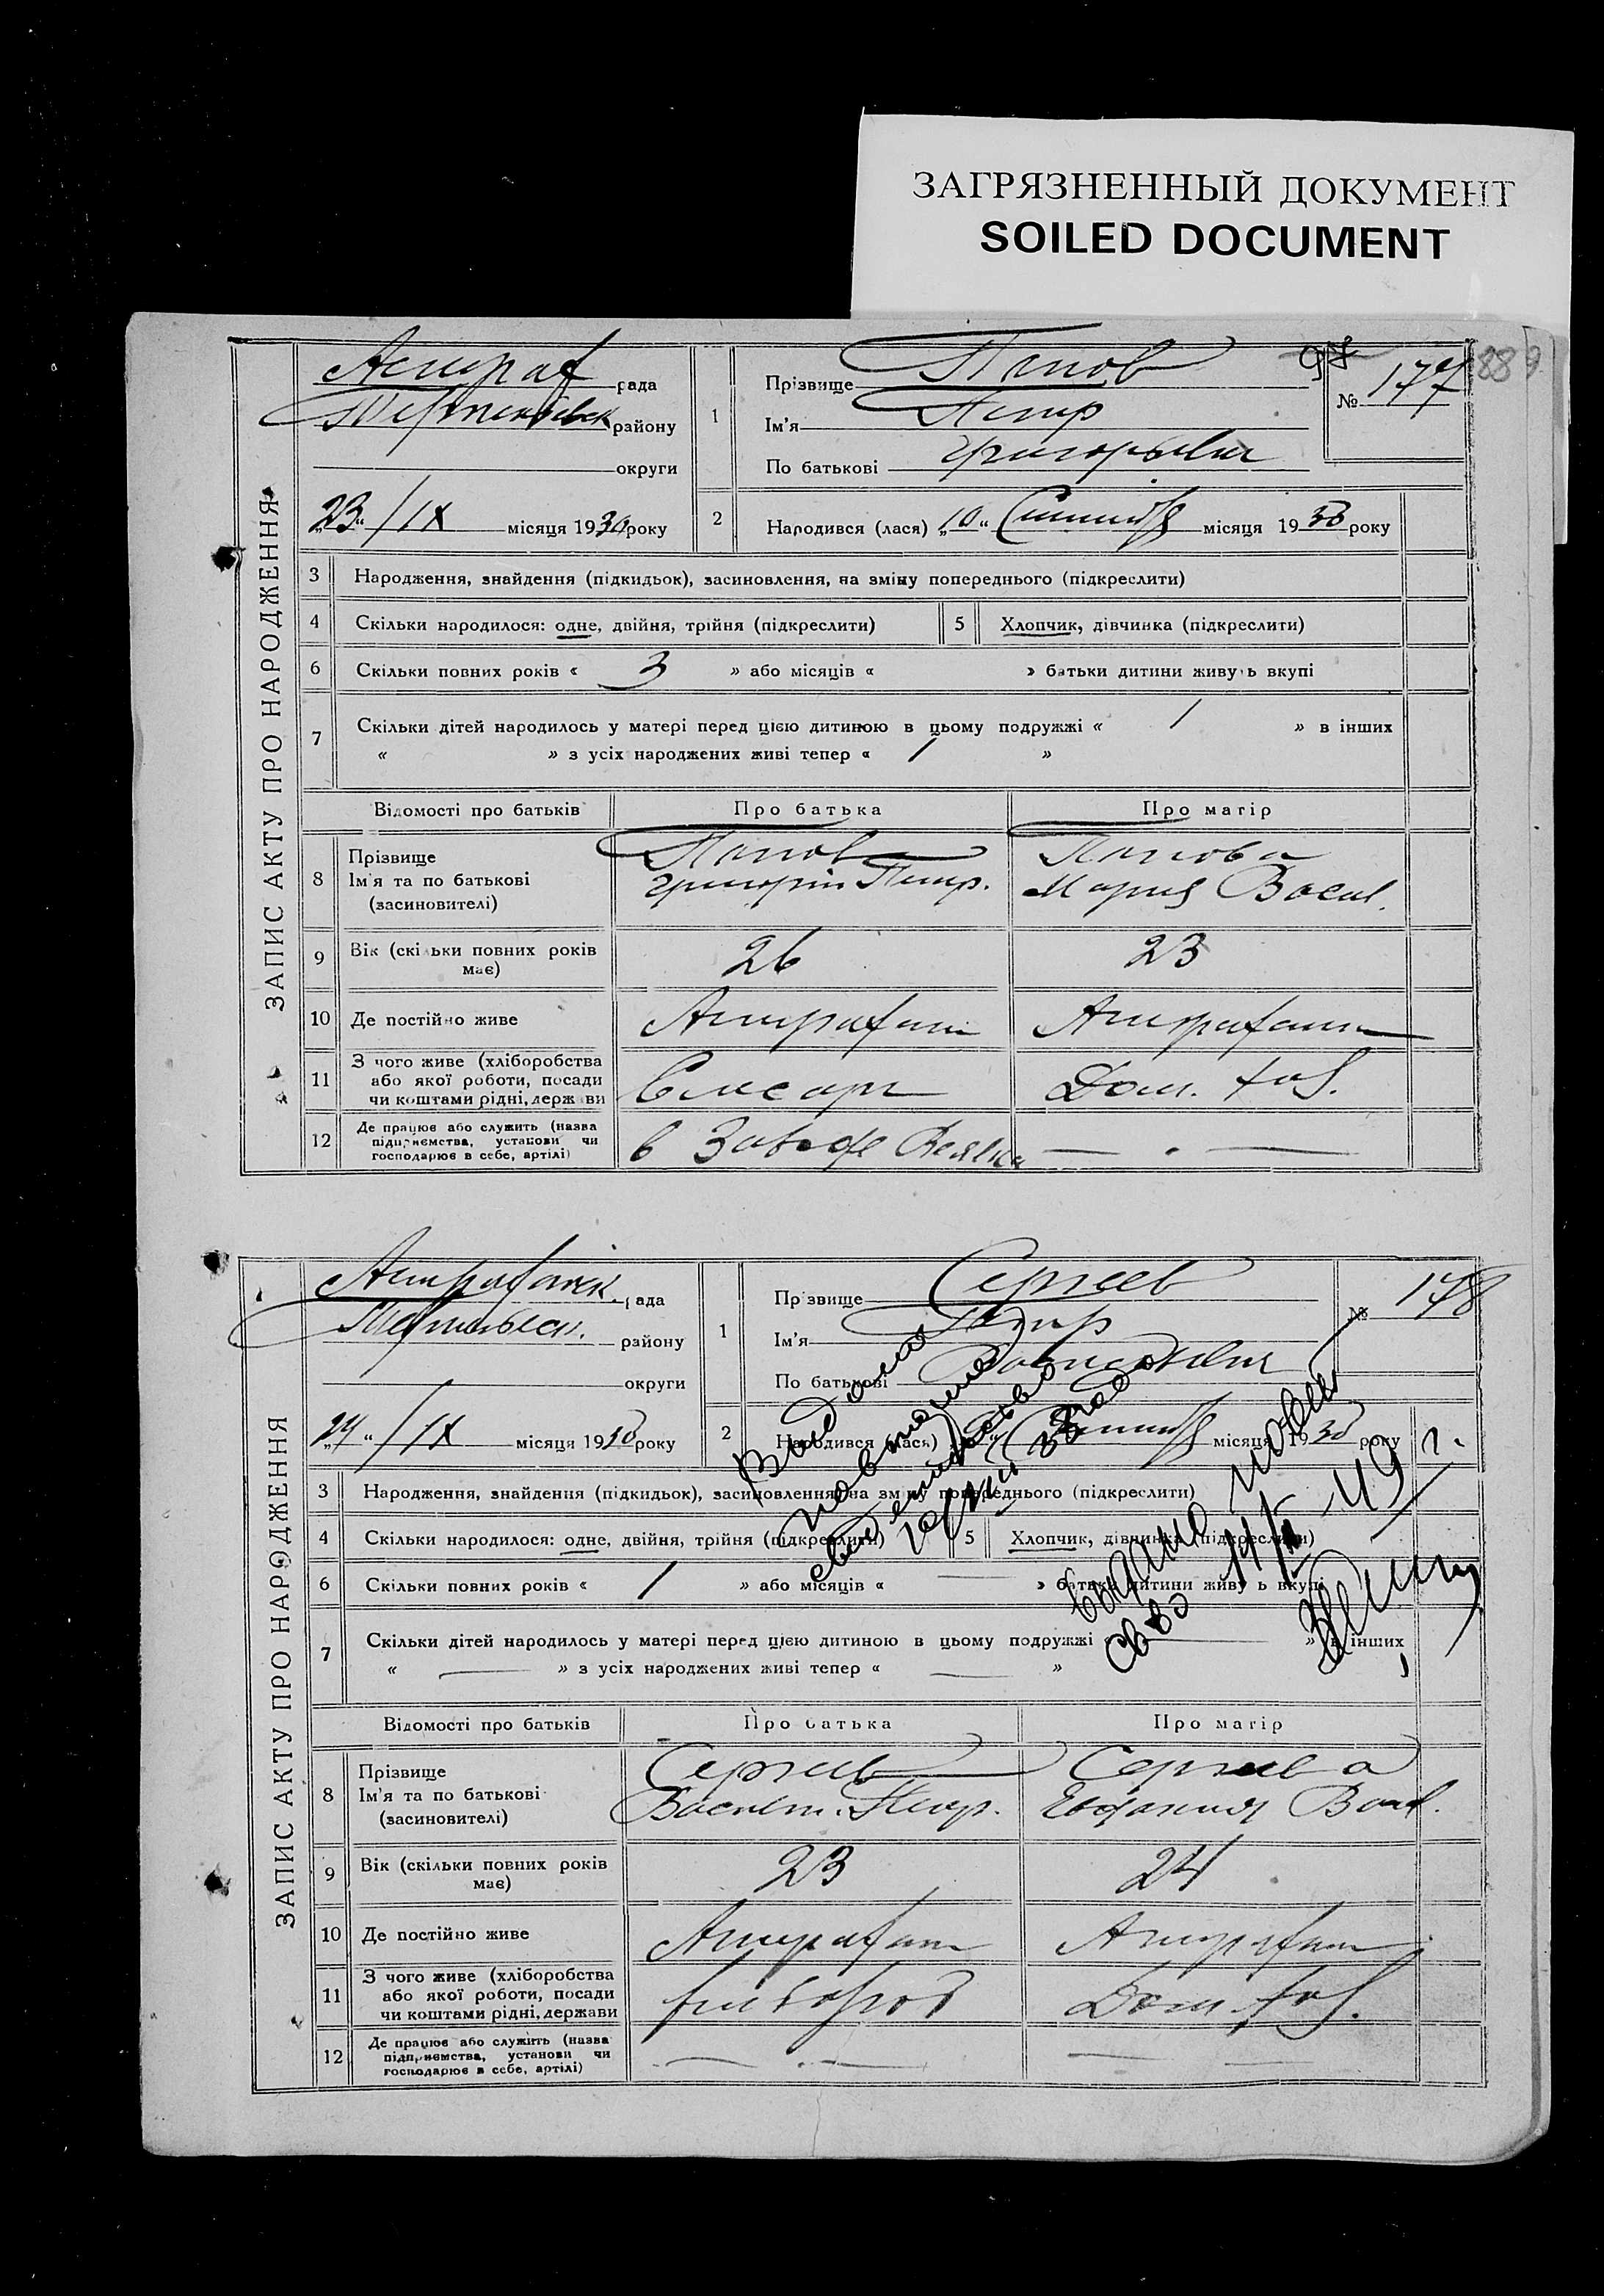 ЗАГРЯЗНЕННЫЙ ДОКУМЕНТ
SOILED DOCUMENT
889
ЗАПИС АКТУ ПРО НАРОДЖЕННЯ
рада
району
округи
„23“ / IX місяця 1930 року
1
Прізвище Попов
Ім'я Петр
По батькові Григорьевич
№ 177
2 Народився (лася) „10“ місяця 1930 року
3 Народження, знайдення (підкидьок), засиновлення, на зміну попереднього (підкреслити)
4 Скільки народилося: одне, двійня, трійня (підкреслити)
5 Хлопчик, дівчинка (підкреслити)
6 Скільки повних років « 3 » або місяців « » батьки дитини живуть вкупі
7 Скільки дітей народилось у матері перед цією дитиною в цьому подружжі « 1 » в інших
« » з усіх народжених живі тепер « 1 »
Відомості про батьків Про батька Про матір
8 Прізвище
Ім'я та по батькові
(засиновителі)
Попов
Григорій Петр.
Попова
Мария Васил.
9 Вік (скільки повних років
має)
26 23
10 Де постійно живе
11 З чого живе (хліборобства
або якої роботи, посади
чи коштами рідні, держави
Слесарь
Дом. хоз.
12 Де працює або служить (назва
підприємства, установи чи
господарює в себе, артілі)
в Заводе
ЗАПИС АКТУ ПРО НАРОДЖЕННЯ
рада
району
округи
„24“ / IX місяця 1930 року
1
Прізвище Сергеев
Ім'я Петр
По батькові
№ 178
2 Народився (лася) місяця 1930 року
3 Народження, знайдення (підкидьок), засиновлення, на зміну попереднього (підкреслити)
4 Скільки народилося: одне, двійня, трійня (підкреслити)
5 Хлопчик, дівчинка (підкреслити)
6 Скільки повних років « 1 » або місяців « — » батьки дитини живуть вкупі
7 Скільки дітей народилось у матері перед цією дитиною в цьому подружжі « — » в інших
« — » з усіх народжених живі тепер « — »
Выдано
повторное
свидетельство
Відомості про батьків Про батька Про матір
8 Прізвище
Ім'я та по батькові
(засиновителі)
Сергеев
Петр.
Сергеева
Васил.
9 Вік (скільки повних років
має)
23 24
10 Де постійно живе
11 З чого живе (хліборобства
або якої роботи, посади
чи коштами рідні, держави
хлебороб
Дом. хоз.
12 Де працює або служить (назва
підприємства, установи чи
господарює в себе, артілі)